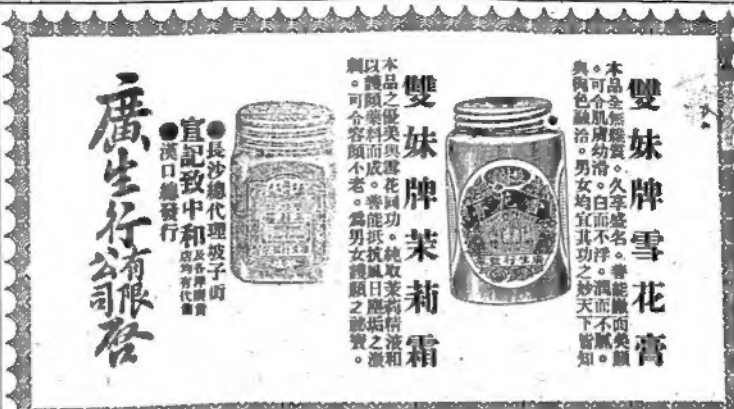 雙妹牌雪花膏
本品全無燥質。久享盛名。善能嫩面美顏
。可令肌膚幼滑。白而不浮。潤而不膩。
與顏色融洽。男女均宜其功之妙天下皆知
雙妹牌茉莉霜
本品之優美與雪花同功。純取茉莉精液和
以護顏藥料而成。善能抵抗風日塵垢之激
刺。可令容顏不老。為男女護顏之祕寶。
●長沙總代理坡子街
宜記致中和
及各洋廣貨
店均有代售
●漢口總發行
廣生行有限公司啓